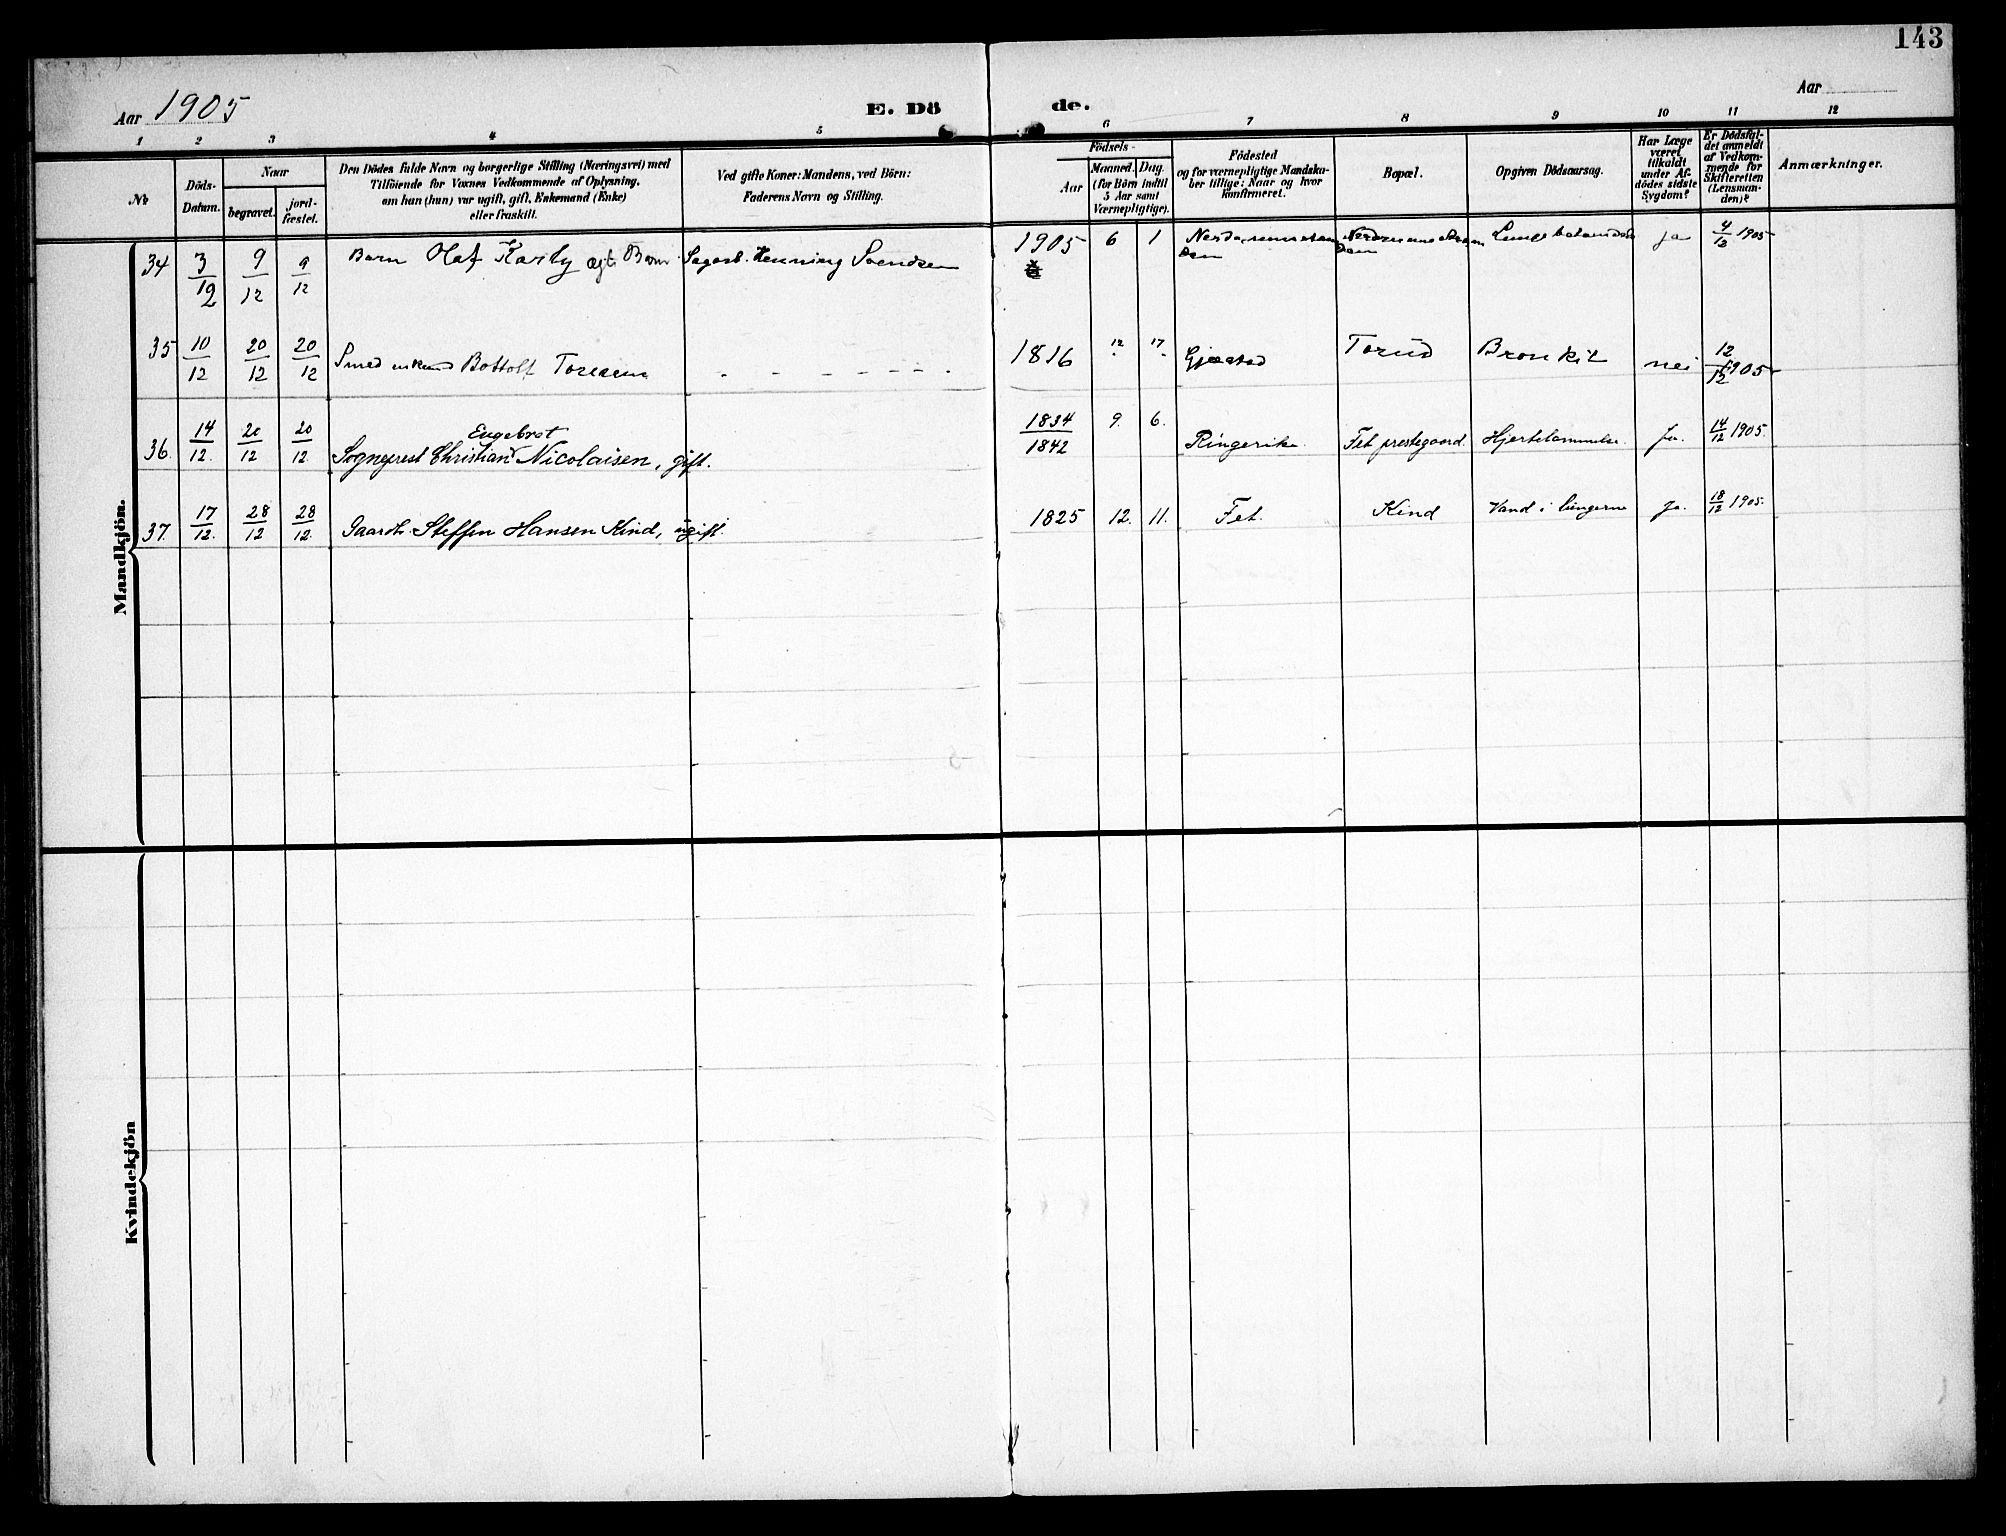 143
Aar 1905 E. Dö de. Aar
1 2 3 4 5 6 7 8 9 10 11 12
No.
Döds-Datum.
Naar
begravet.
jord-fæstet.
Den Dödes fulde Navn og borgerlige Stilling (Næringsvei) med
Tilföiende for Voxnes Vedkommende af Oplysning,
om han (hun) var ugift, gift, Enkemand (Enke)
eller fraskilt.
Ved gifte Koner: Mandens, ved Börn:
Faderens Navn og Stilling.
Födsels-
Aar
Maaned. Dag.
(for Börn indtil
5 Aar samt
Værnepligtige).
Födested
og for værnepligtige Mandska-
ber tillige: Naar og hvor
konfirmeret.
Bopæl.
Opgiven Dödsaarsag.
Har Læge
været
tilkaldt
under Af-
dödes sidste
Sygdom?
Er Dödsfal-
det anmeldt
af Vedkom-
mende for
Skifteretten
(Lensman-
den)?
Anmærkninger.
Mandkjön.
34 3/12 9/12 9/12 Barn Olaf Karty ægt. Barn Sagarb. Henning Svendsen 1905 6 1 ja 4/12 1905
35 10/12 20/12 20/12 Smed enkem. Bottolf Toresen - - - - - - - 1816 12 17 Gjerstad Torud Bronkit nei 12/12 1905
36. 14/12. 20/12 20/12 Sogneprest Christian Engebret Nicolaisen, gift. 1834/1842 9. 6. Ringerike. Fet prestegaard. Hjertelammelse. Ja. 14/12 1905.
37. 17/12. 28/12 28/12. Gaardbr. Steffen Hansen Kind, ugift. 1825 12. 11. Fet. Kind Vand i lungerne Ja. 18/12 1905.
Kvindekjön